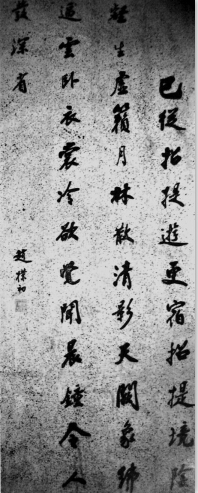 已從招提遊更宿招提境陰
壑生虛籟月林散清影天闕象緯
逼雲卧衣裳冷欲覺聞晨鐘令人
發深省
趙樸初